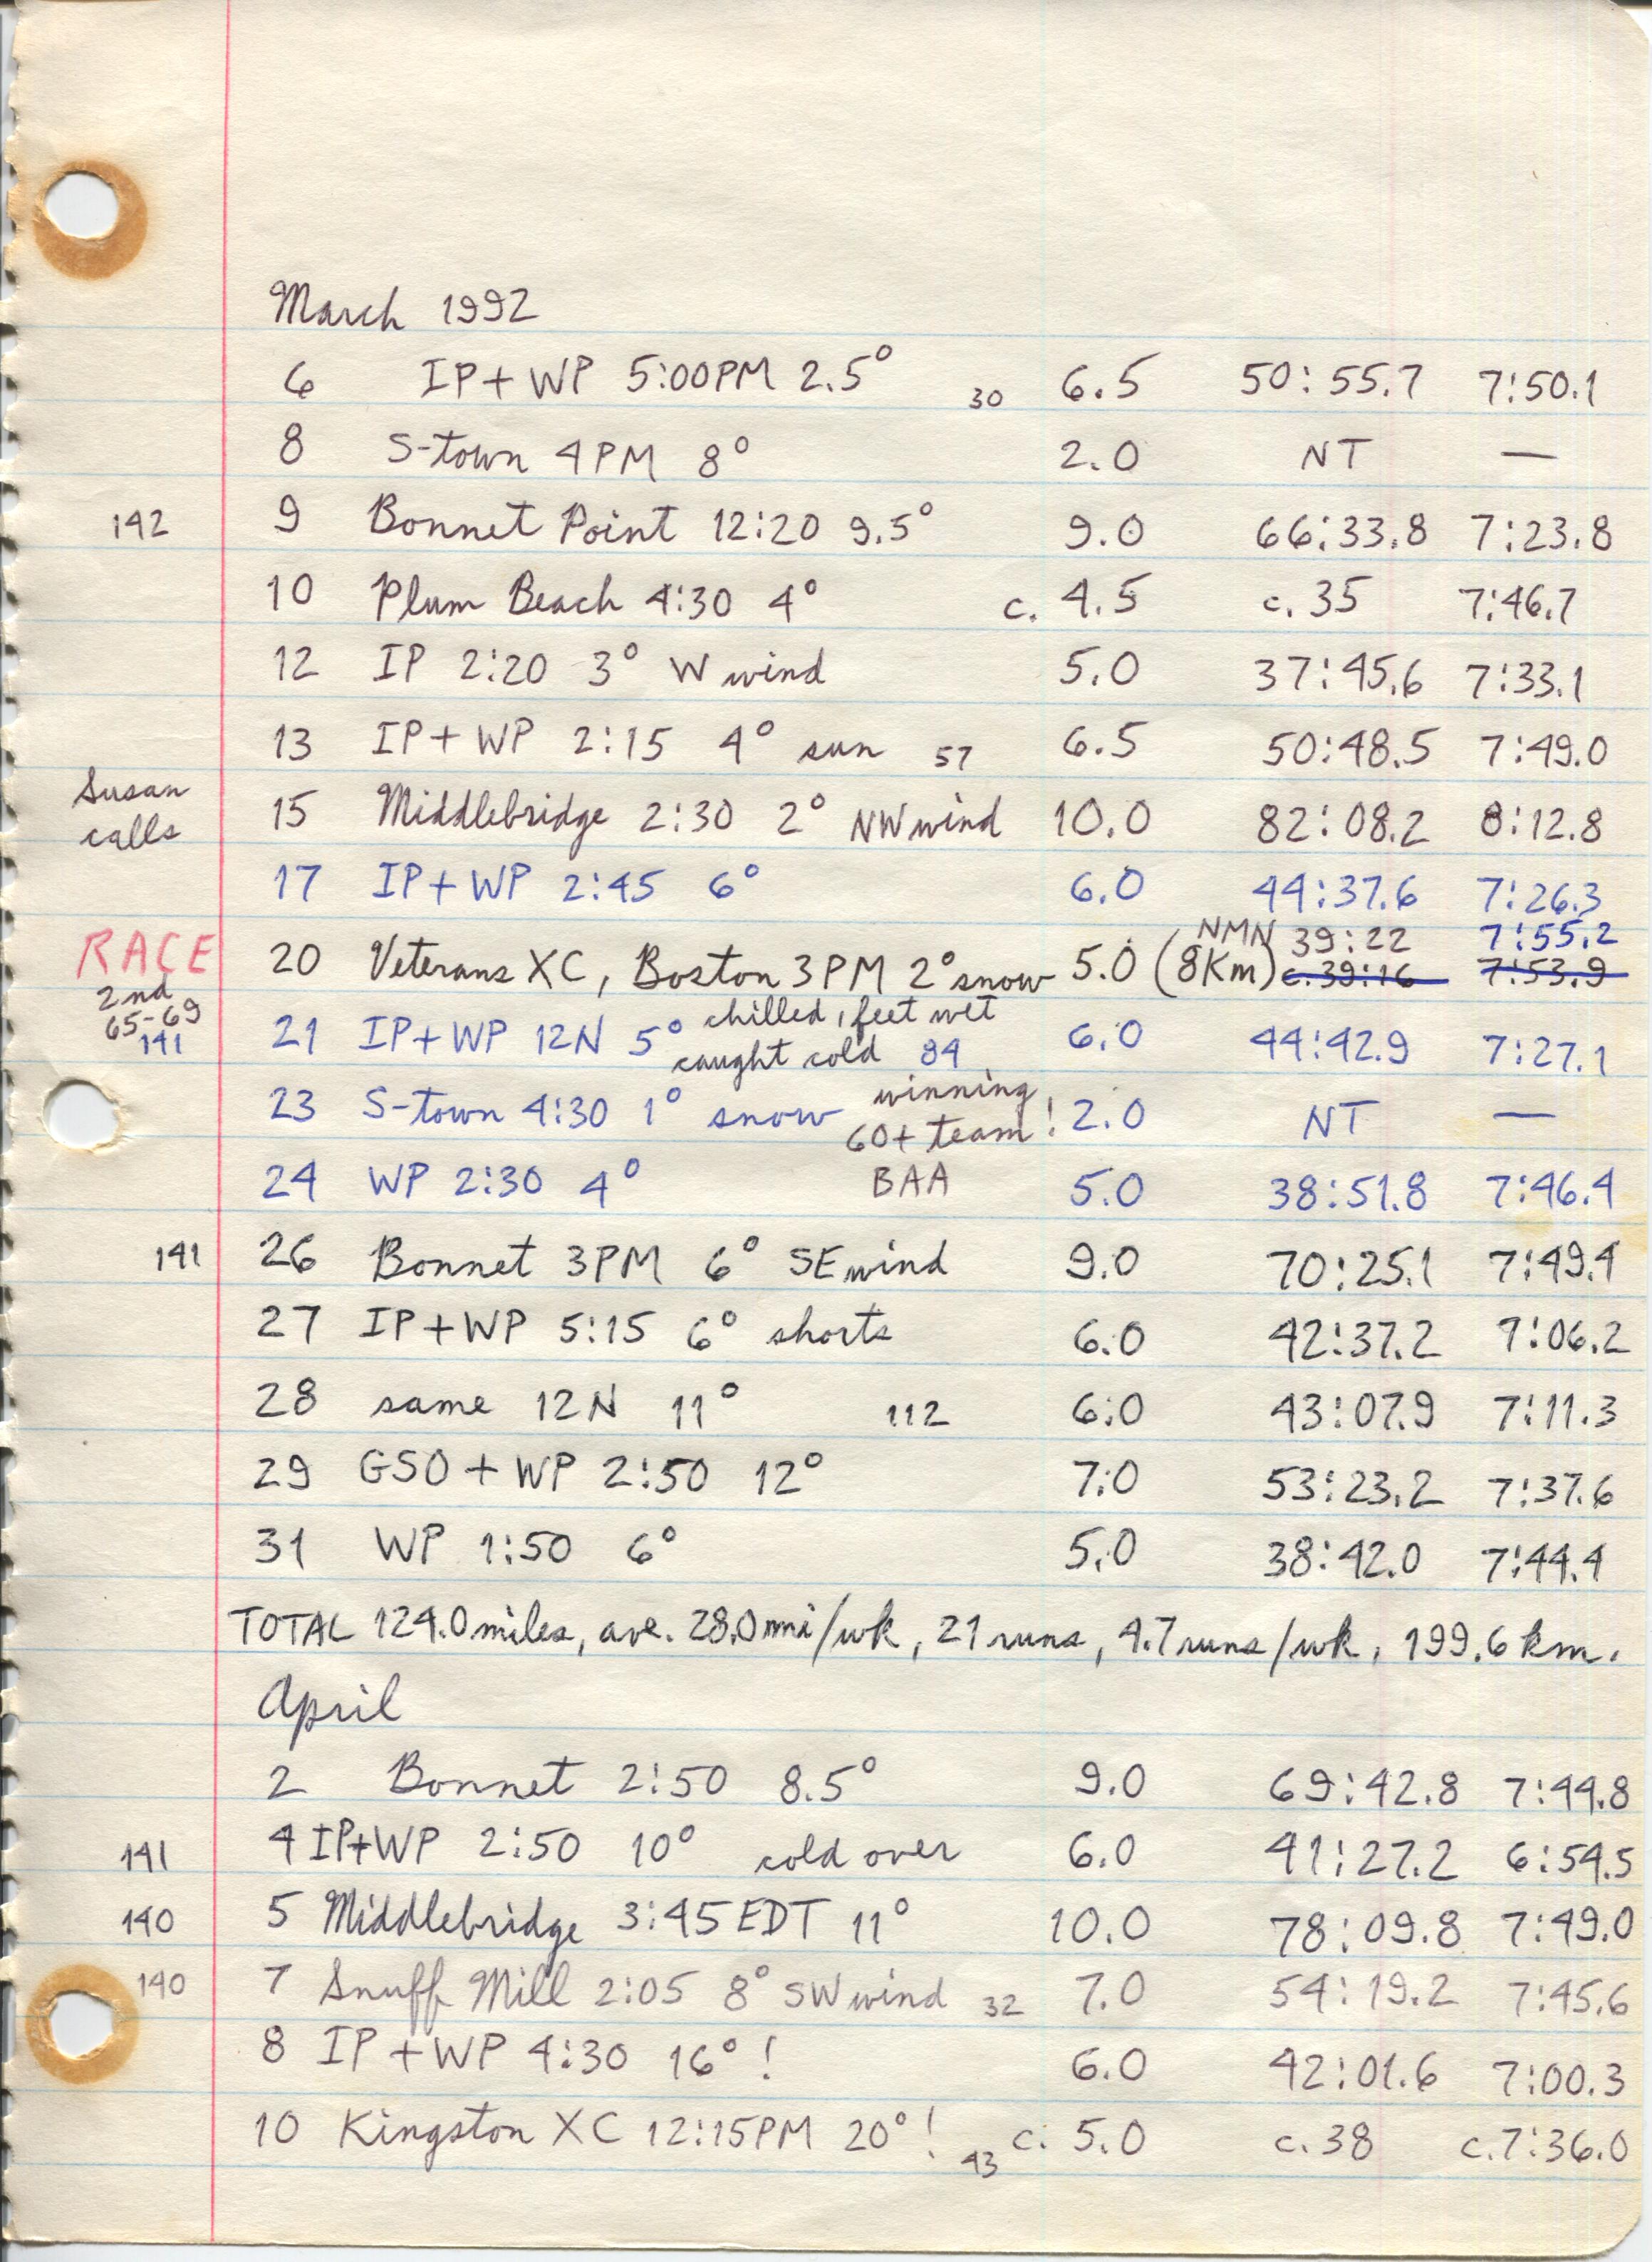 March 1992
6 IP+WP 5:00PM 2.5° 30 6.5 50:55.7 7:50.1
8 S-town 4PM 8° 2.0 NT —
142 9 Bonnet Point 12:20 9.5° 9.0 66:33.8 7:23.8
10 Plum Beach 4:30 4° c. 4.5 c. 35 7:46.7
12 IP 2:20 3° W wind 5.0 37:45.6 7:33.1
13 IP+WP 2:15 4° sun 57 6.5 50:48.5 7:49.0
Susan calls 15 Middlebridge 2:30 2° NW wind 10.0 82:08.2 8:12.8
17 IP+WP 2:45 6° 6.0 44:37.6 7:26.3
NMN 39:22 7:55.2
RACE 20 Veterans XC, Boston 3PM 2° snow 5.0 (8Km) c.39:16 7:53.9
2nd
65-69
chilled, feet wet
141 21 IP+WP 12N 5° caught cold 84 6.0 44:42.9 7:27.1
winning
23 S-town 4:30 1° snow 60+ team! 2.0 NT —
24 WP 2:30 4° BAA 5.0 38:51.8 7:46.4
141 26 Bonnet 3PM 6° SE wind 9.0 70:25.1 7:49.4
27 IP+WP 5:15 6° shorts 6.0 42:37.2 7:06.2
28 same 12N 11° 112 6.0 43:07.9 7:11.3
29 GSO+WP 2:50 12° 7.0 53:23.2 7:37.6
31 WP 1:50 6° 5.0 38:42.0 7:44.4
TOTAL 124.0 miles, ave. 28.0 mi/wk, 21 runs, 4.7 runs/wk, 199.6 km.
April
2 Bonnet 2:50 8.5° 9.0 69:42.8 7:44.8
141 4 IP+WP 2:50 10° cold over 6.0 41:27.2 6:54.5
140 5 Middlebridge 3:45 EDT 11° 10.0 78:09.8 7:49.0
140 7 Snuff Mill 2:05 8° SW wind 32 7.0 54:19.2 7:45.6
8 IP+WP 4:30 16°! 6.0 42:01.6 7:00.3
10 Kingston XC 12:15PM 20°! 43 c. 5.0 c. 38 c. 7:36.0